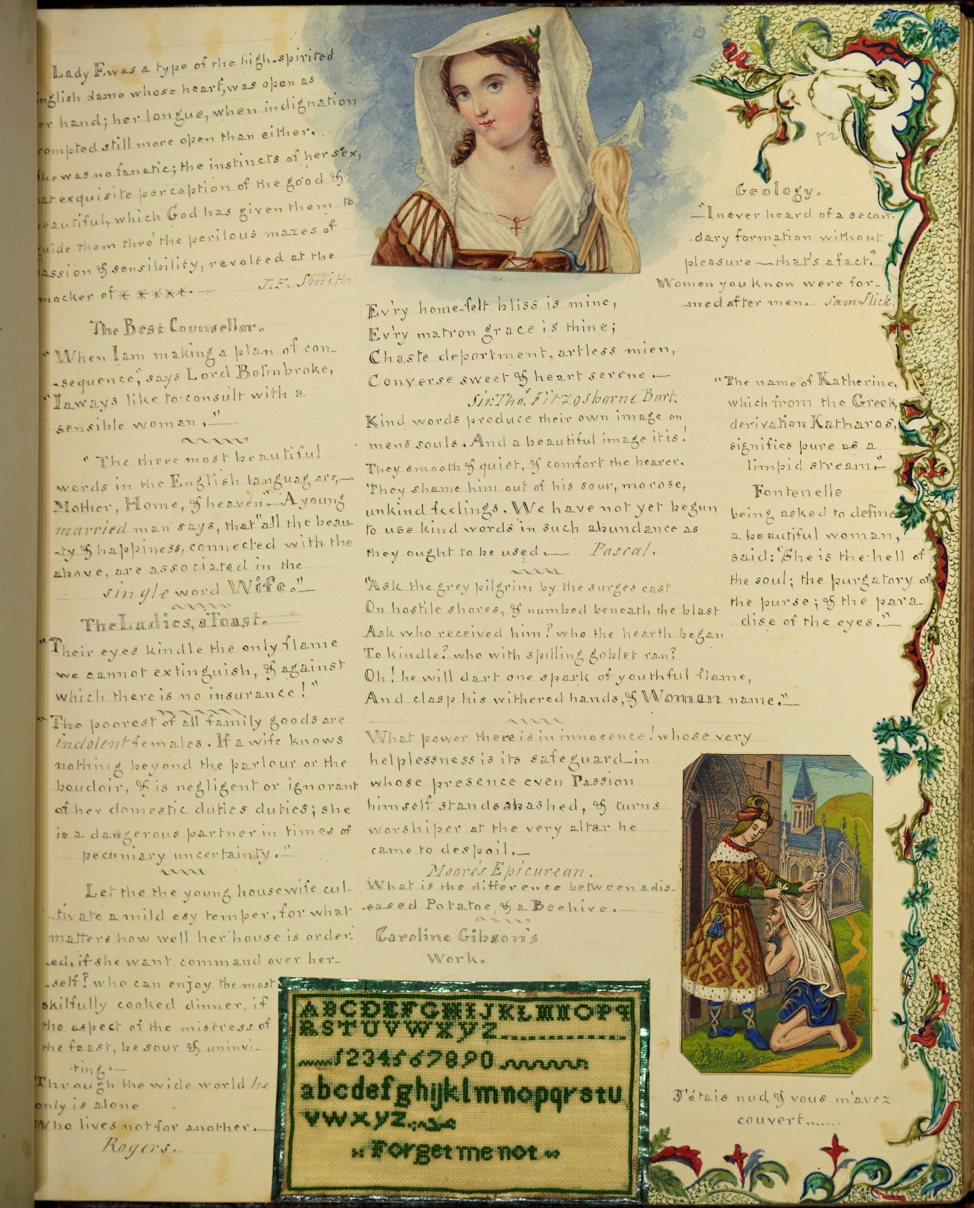 Lady F. was a type of the high-spirited
nglish dame whose heart, was open as
er hand; her tongue, when indignation
ompted still more open than either.
he was no fanatic; the instincts of her sex,
at exquisite perception of the good &
eautiful, which God has given them to
uide them thro' the perilous mazes of
assion & sensibility, revolted at the
mocker of ✳ ✳✳✳✳. — J.F. Smith
The Best Counsellor.
"When I am making a plan of con-
-sequence," says Lord Bolinbroke,
"I always like to consult with a
sensible woman."—
"The three most beautiful
words in the English languag are,—
Mother, Home, & heaven". A young
married man says, that "all the beau-
-ty & happiness, connected with the
above, are associated in the
single word Wife."—
The Ladies, a Toast.
"Their eyes kindle the only flame
we cannot extinguish, & against
which there is no insurance!"
"The poorest of all family goods are
indolent females. If a wife knows
nothing beyond the parlour or the
boudoir, & is negligent or ignorant
of her domestic duties duties; she
is a dangerous partner in times of
pecuniary uncertainty."
Let the the young housewife cul-
-tivate a mild esy temper, for what
matters how well her house is order-
-ed, if she want command over her-
-self? who can enjoy the most
skilfully cooked dinner, if
the aspect of the mistress of
the feast, be sour & uninvi-
-ting—
Through the wide world he
only is alone
Who lives not for another.—
Rogers.—
Ev'ry home-felt bliss is mine,
Ev'ry matron grace is thine;
Chaste deportment, artless mien,
Converse sweet & heart serene.—
Sir Tho.s Fitzosborne Bart.
Kind words produce their own image on
mens souls. And a beautiful image it is!
They smooth & quiet, & comfort the hearer.
They shame him out of his sour, morose,
unkind feelings. We have not yet begun
to use kind words in such abundance as
they ought to be used.— Pascal.
"Ask the grey pilgrim by the surges cast
On hostile shores, & numbed beneath the blast
Ask who received him? who the hearth began
To kindle? who with spilling goblet ran?
Oh! he will dart one spark of youthful flame,
And clasp his withered hands, & Woman name."—
What power there is in innocence! whose very
helplessness is its safeguard—in
whose presence even Passion
himself stands abashed, & turns
worshiper at the very altar he
came to despoil.—
Moore's Epicurean.
What is the difference between a dis-
-eased Potatoe, & a Beehive.—
Caroline Gibson's
Work.
ABCDEFGHIJKLMNOPQ
RSTUVWXYZ
1234567890
abcdefghijklmnopqrstu
vwxyz
Forget me not
52
Geology.
—"I never heard of a secon-
-dary formation without
pleasure—that's a fact."
Women you know were for-
-med after men. Sam Slick.
"The name of Katherine,
which from the Greek
derivation Katharos,
signifies pure as a
limpid stream."
Fontenelle
being asked to define
a beautiful woman,
said: "She is the hell of
the soul; the purgatory of
the purse; & the para-
dise of the eyes."—
J'étais nud, & vous m'avez
couvert......